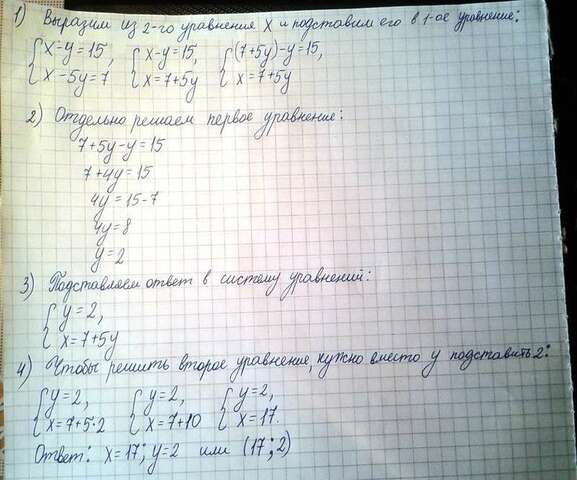 1) Выразим из 2-го уравнения x и подставим его в 1-ое уравнение:
{x-y=15, {x-y=15, {(7+5y)-y=15,
{x-5y=7 {x=7+5y {x=7+5y
2) Отдельно решаем первое уравнение:
7+5y-y=15
7+4y=15
4y=15-7
4y=8
y=2
3) Подставляем ответ в систему уравнений:
{y=2,
{x=7+5y
4) Чтобы решить второе уравнение, нужно вместо y подставить 2:
{y=2, {y=2, {y=2,
{x=7+5·2 {x=7+10 {x=17.
Ответ: x=17; y=2 или (17; 2)